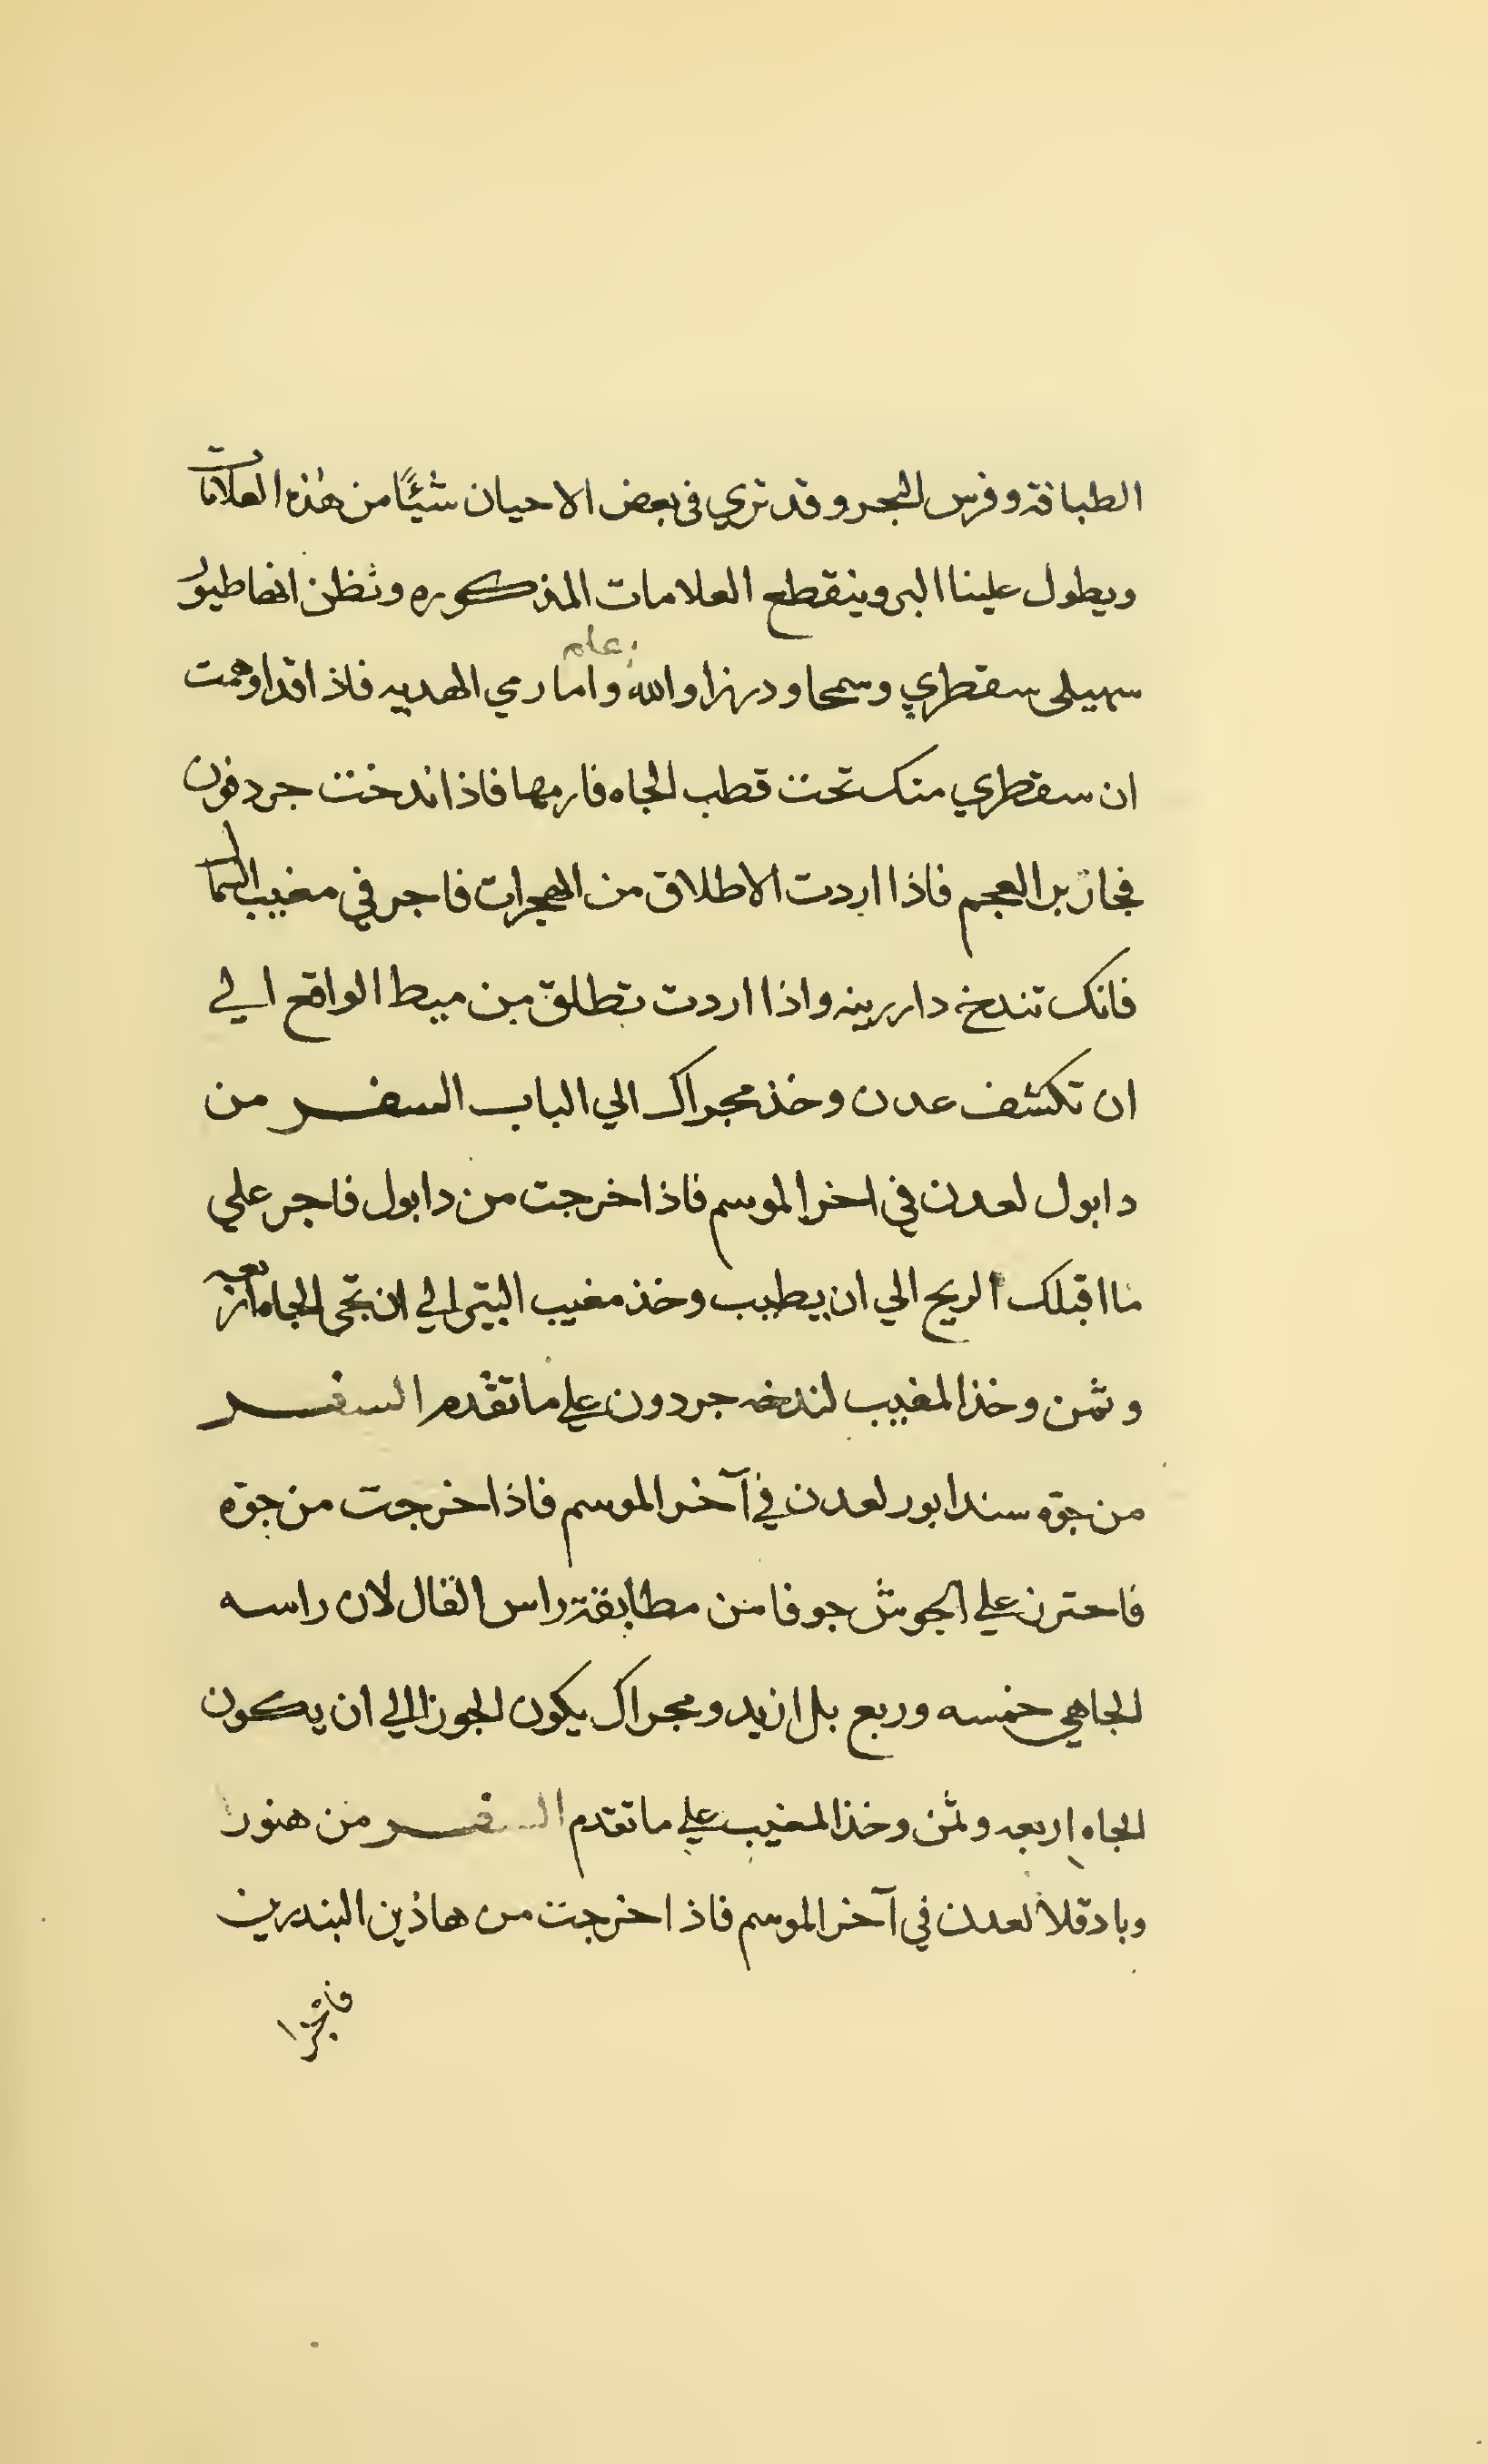 الطبافة وفرس البحر وقد تري في بعض الاحيان شيئًا من هذه العلامات
ويطول علينا البر وينقطع العلامات المذكوره ونظن انها طيور
سهيلى سقطري وسمحا ودرزا والله
اعلم
واما رمي الهديه فاذا قد اوهمت
ان سقطري منك تحت قطب الجاه فارمها فاذا ندخت جردفون
فجاز بر العجم فاذا اردت الاطلاق من الهجرات فاجر في مغيب السماك
فانك تندخ دارزينه واذا اردت تطلق من ميط الواقع الي
ان تكشف عدن وخذ مجراك الي الباب السفر من
دابول لعدن في اخر الموسم فاذا خرجت من دابول فاجر علي
ما اقبلك الريح الي ان يطيب وخذ مغيب التير الي ان تجى الجاه اربعه
وثمن وخذ المغيب لندخه جردون علي ما تقدم السفر
من جوة سندابور لعدن في آخر الموسم فاذا خرجت من جوة
فاحترز علي الجوش جوفا من مطابقة راس الفال لان راسه
الجاهي خمسه وربع بل ازيد ومجراك يكون الجوزا الي ان يكون
الجاه اربعه وثمن وخذ المغيب علي ما تقدم السفر من هنور
وبادقلا لعدن في آخر الموسم فاذا خرجت من هاذين البندرين